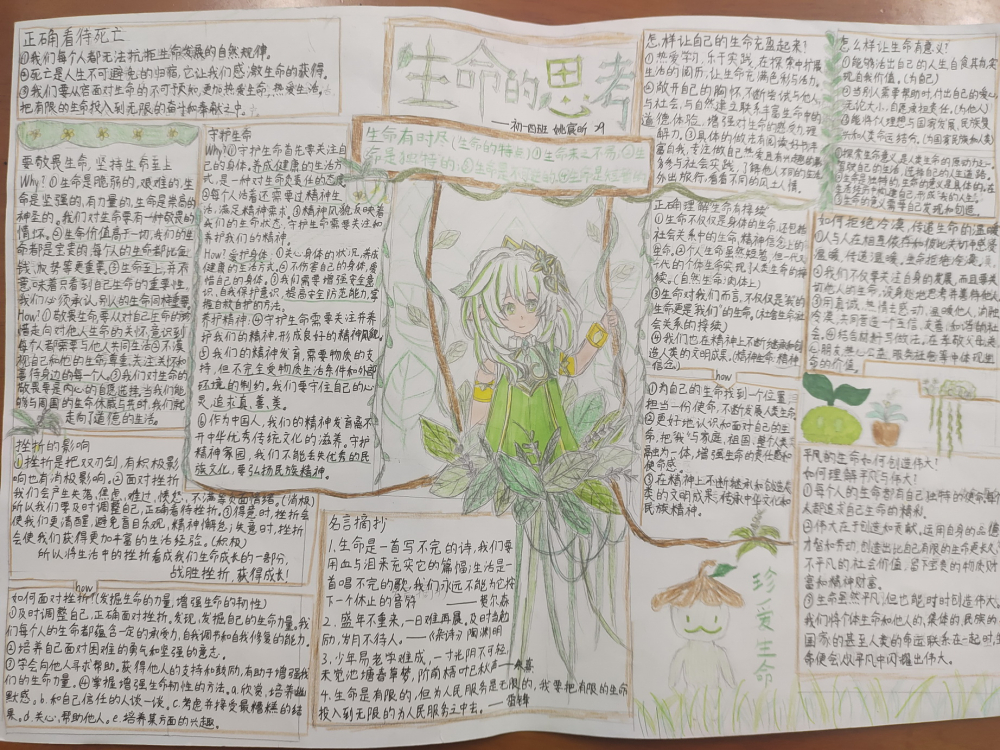 正确看待死亡
①我们每个人都无法抗拒生命发展的自然规律。
②死亡是人生不可避免的归宿,它让我们感激生命的获得。
③我们要从容面对生命的不可预知,更加热爱生命,热爱生活。
把有限的生命投入到无限的奋斗和奉献之中。
生命的思考
——初一四班
生命有时尽(生命的特点)①生命来之不易,②生
命是独特的,
要敬畏生命,坚持生命至上
Why!①生命是脆弱的,艰难的,生
命是坚强的,有力量的,生命是崇高
神圣的。我们对生命要有一种敬畏的
情怀。②生命价值高于一切,我们的生
命都是宝贵的,每个人的生命都比金
钱、权势等更重要。③生命至上,并不
意味着只看到自己生命的重要性,
我们必须承认,别人的生命同样重要。
How!①敬畏生命要从对自己生命的珍
惜走向对他人生命的关怀,意识到
每个人都需要与他人共同生活。②不漠
视自己和他的生命,尊重、关注、关怀和
善待身边的每一个人。③我们对生命的
敬畏要是内心的自愿选择,当我们能
够与周围的生命休戚与共时,我们就
走向了道德的生活。
守护生命
Why!①守护生命首先要关注自
己的身体,养成健康的生活方
式,是一种对生命负责任的态度
②每个人活着还需要过精神生
活,满足精神需求。③精神风貌反映着
我们的生命状态,守护生命需要关注和
养护我们的精神。
How!爱护身体:①关心身体的状况,养成
健康的生活方式。②不伤害自己的身体,爱
惜自己的身体。③我们需要增强安全意
识,自我保护意识,提高安全防范能力,掌
握自救自护的方法。
养护精神:④守护生命需要关注并养
护我们的精神,形成良好的精神风貌。
⑤我们的精神发育,需要物质的支
持,但不完全受物质生活条件和外部
环境的制约。我们要守住自己的心
灵,追求真、善、美。
⑥作为中国人,我们的精神发育离不
开中华优秀传统文化的滋养。守护
精神家园,我们不能丢失优秀的民
族文化,要弘扬民族精神。
挫折的影响
①挫折是把双刃剑,有积极影
响也有消极影响。②面对挫折
我们会产生失落,焦虑,难过,愤怒,不满等负面情绪。(消极)
所以我们要及时调整自己,正确看待挫折。③得意时,挫折会
使我们更清醒,避免盲目乐观,精神懈怠;失意时,挫折
会使我们获得更加丰富的生活经验。(积极)
所以将生活中的挫折看成我们生命成长的一部分,
战胜挫折,获得成长!
how
如何面对挫折!(发掘生命的力量,增强生命的韧性)
①及时调整自己,正确面对挫折。发现,发掘自己的生命力量。我
们每个人的生命都蕴含一定的承受力,自我调节和自我修复的能力。
②培养自己面对困难的勇气和坚强的意志。
③学会向他人寻求帮助。获得他人的支持和鼓励,有助于增强我
们的生命力量。④掌握增强生命韧性的方法。a.欣赏,培养幽
默感。b.和自己信任的人谈一谈。c.考虑并接受最糟糕的结
果。d.关心,帮助他人。e.培养某方面的兴趣。
名言摘抄
1.生命是一首写不完的诗,我们要
用血与泪来充实它的篇幅;生活是一
首唱不完的歌,我们永远不能为它按
下一个休止的音符 ——莫尔森
2.盛年不重来,一日难再晨。及时当勉
励,岁月不待人。——《杂诗》陶渊明
3.少年易老学难成,一寸光阴不可轻。
未觉池塘春草梦,阶前梧叶已秋声——朱熹
4.生命是有限的,但为人民服务是无限的,我要把有限的生命
投入到无限的为人民服务之中去。——雷锋
怎样让自己的生命充盈起来!
①热爱学习,乐于实践,在探索中扩展
生活的阅历,让生命充满色彩与活力。
②敞开自己的胸怀,不断尝试与他人,
与社会,与自然建立联系,丰富生命中的
道德体验,增强对生命的感受力,理
解力。③具体的做法有:阅读好书丰
富自我,专注做自己
多参与社会实践,了解他人不同的生活
外出旅行,看看不同的风土人情。
怎么样让生命有意义!
①能够活出自己的人生,自食其力,实
现自我价值。(为自己)
②当别人需要帮助时,付出自己的爱心,
无论大小,自愿承担责任,(为他人)
③能将个人理想与国家发展,民族复
兴和人类命运结合。(为国家民族和人类)
①探索生命意义是人类生命的原动力之一,
正确理解生命有接续
①生命不仅仅是身体的生命,还包括
社会关系中的生命,精神信念上的
生命。②个人生命虽然短暂,但一代又
一代的个体生命实现了人类生命的接
续。(自然生命/肉体上)
③生命对我们而言,不仅仅是我的
生命更是我们的生命。(社会生命社
会关系的接续)
④我们也在精神上不断继承和创
造人类的文明成果(精神生命 精神
信念)
how
①为自己的生命找到一个位置,
担当一份使命,不断发展人类生命
②更好地认识和面对自己的生
命,把“我”与家庭,祖国,
融为一体,增强生命的责任感和
使命感。
③在精神上不断继承和创造人
类的文明成果,传承中华文化和
民族精神。
如何拒绝冷漠,传递生命的温暖
①人与人在相互依存和彼此关切中感受
温暖,传递温暖,生命拒绝冷漠。
②我们不仅要关注自身的发展,而且要关
切他人的生命,设身处地思考并善待他人
平凡的生命如何创造伟大!
如何理解平凡与伟大!
①每个人的生命都有自己独特的使命,每个
人都能书写自己生命的精彩。
②伟大在于创造和贡献。运用自身的品德,
才智和劳动,创造出比自己有限的生命更长久
不平凡的社会价值,留下宝贵的物质财
富和精神财富。
③生命虽然平凡,但也能时时创造伟大。
我们将个体生命和他人的,集体的,民族的,
国家的甚至人类的命运联系在一起时,生
命便会从平凡中闪耀出伟大。
珍爱生命